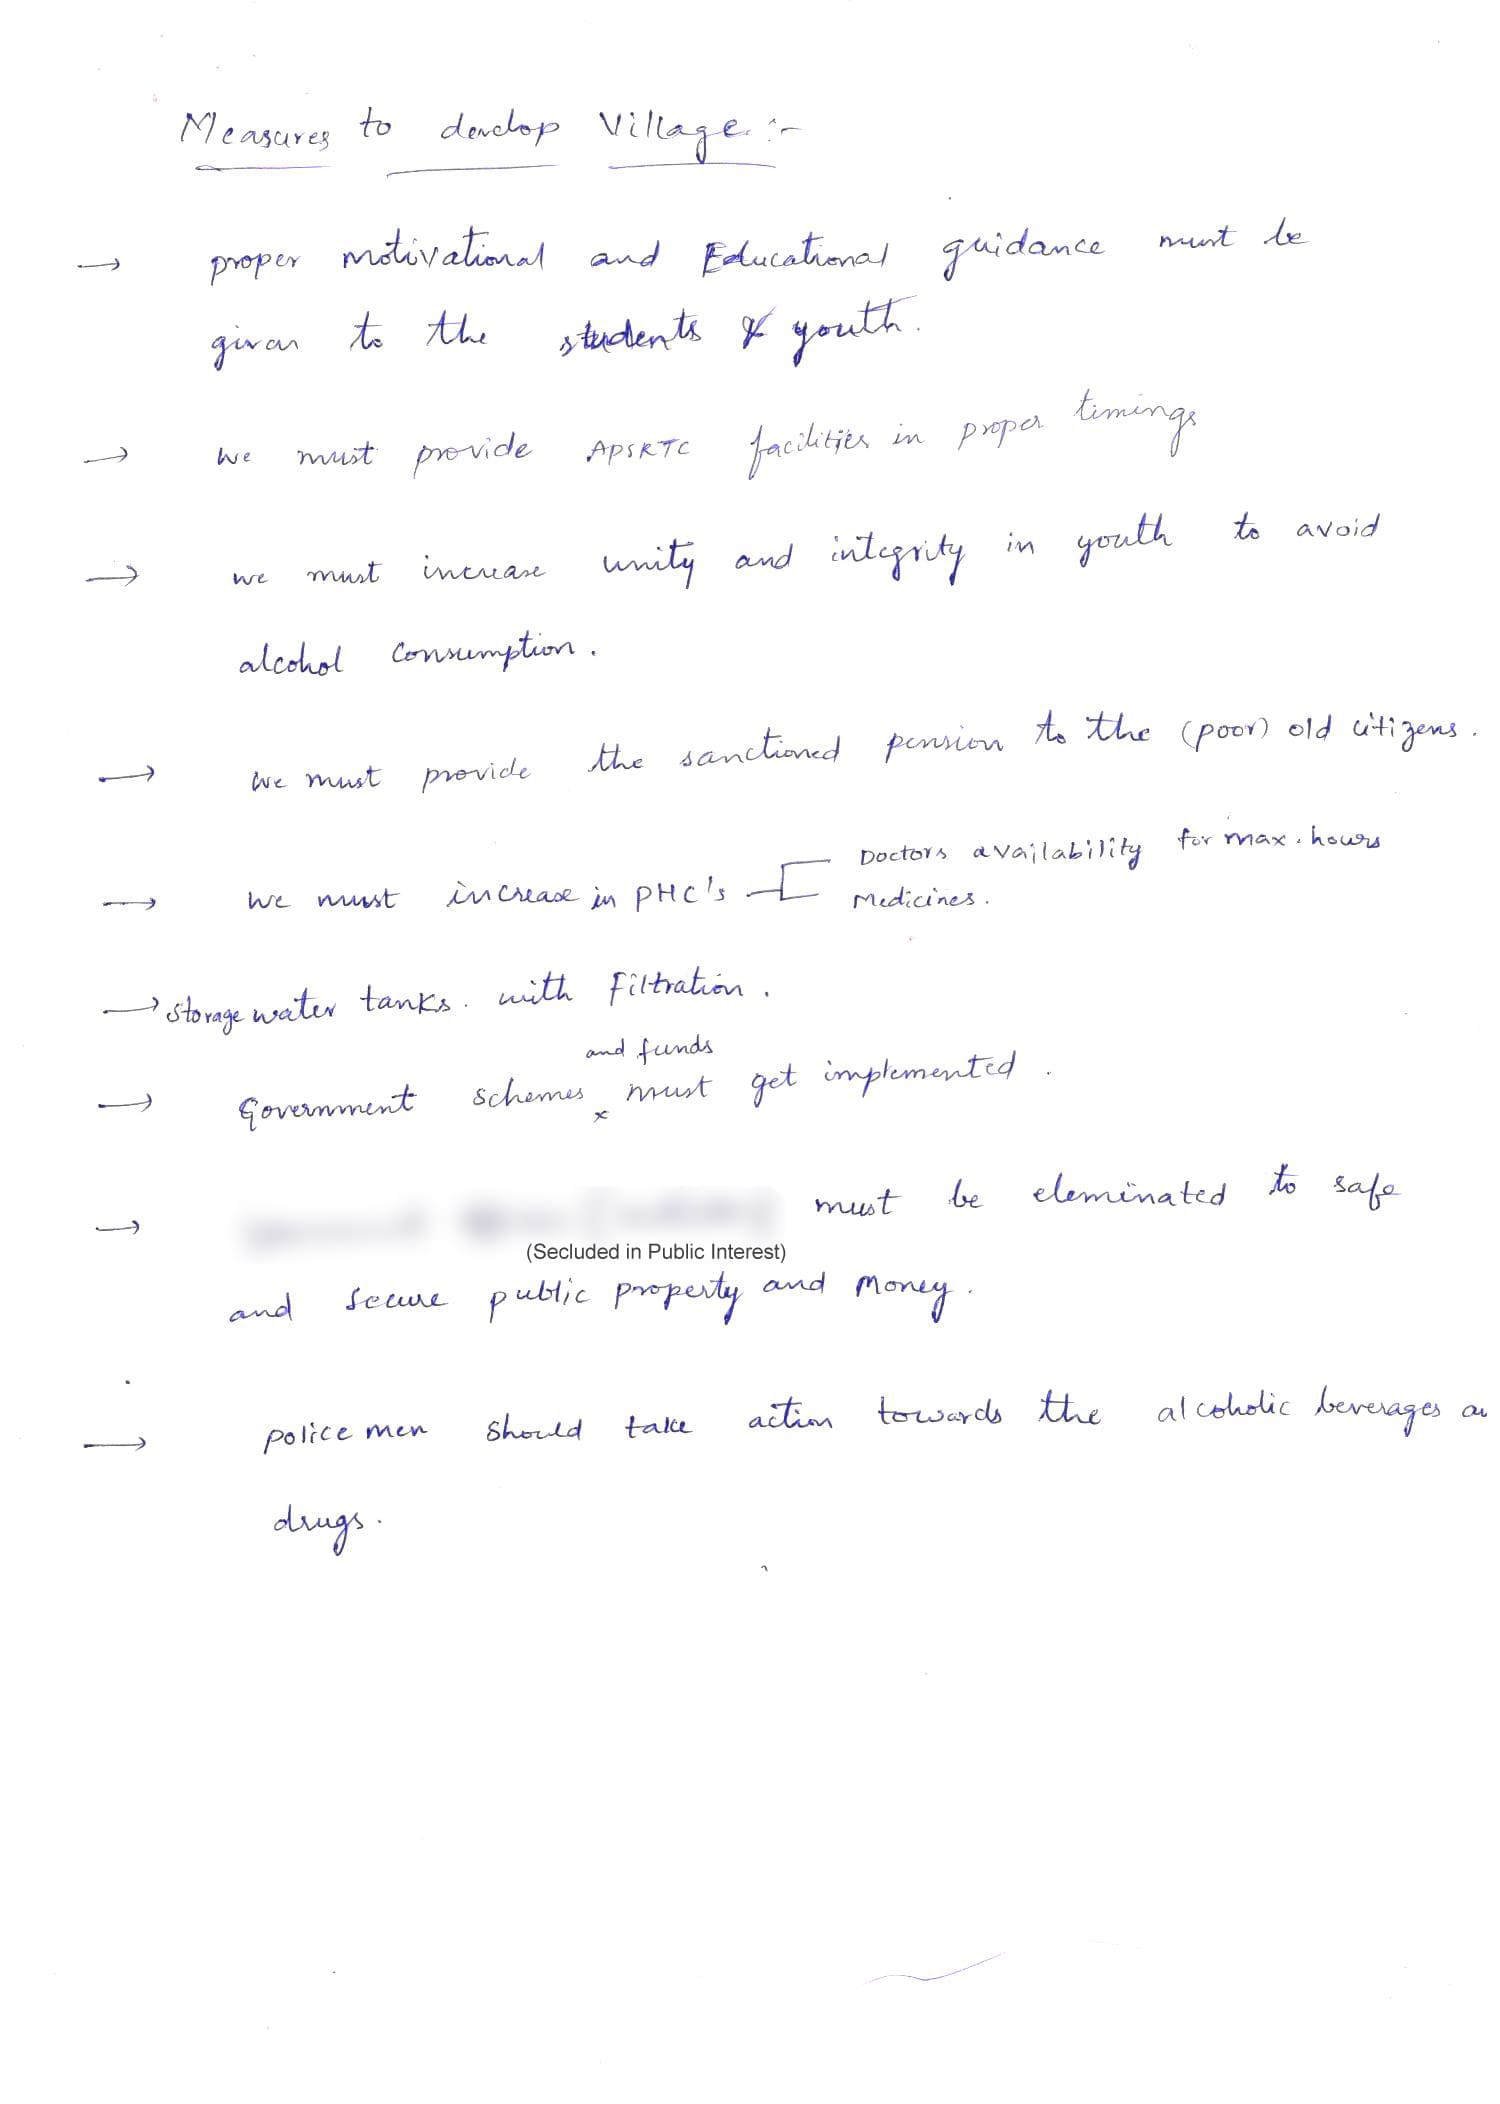 Measures to develop Village :-
→ proper motivational and Educational guidance must be
given to the students & youth.
→ we must provide APSRTC facilities in proper timings
→ we must increase unity and integrity in youth to avoid
alcohol consumption.
→ we must provide the sanctioned pension to the (poor) old citizens.
→ we must increase in PHC's
Doctors availability for max. hours
Medicines.
→ storage water tanks. with Filtration.
and funds
→ Government schemes x must get implemented.
→ must be eleminated to safe
(Secluded in Public Interest)
and secure public property and Money.
→ police men should take action towards the alcoholic beverages
drugs.